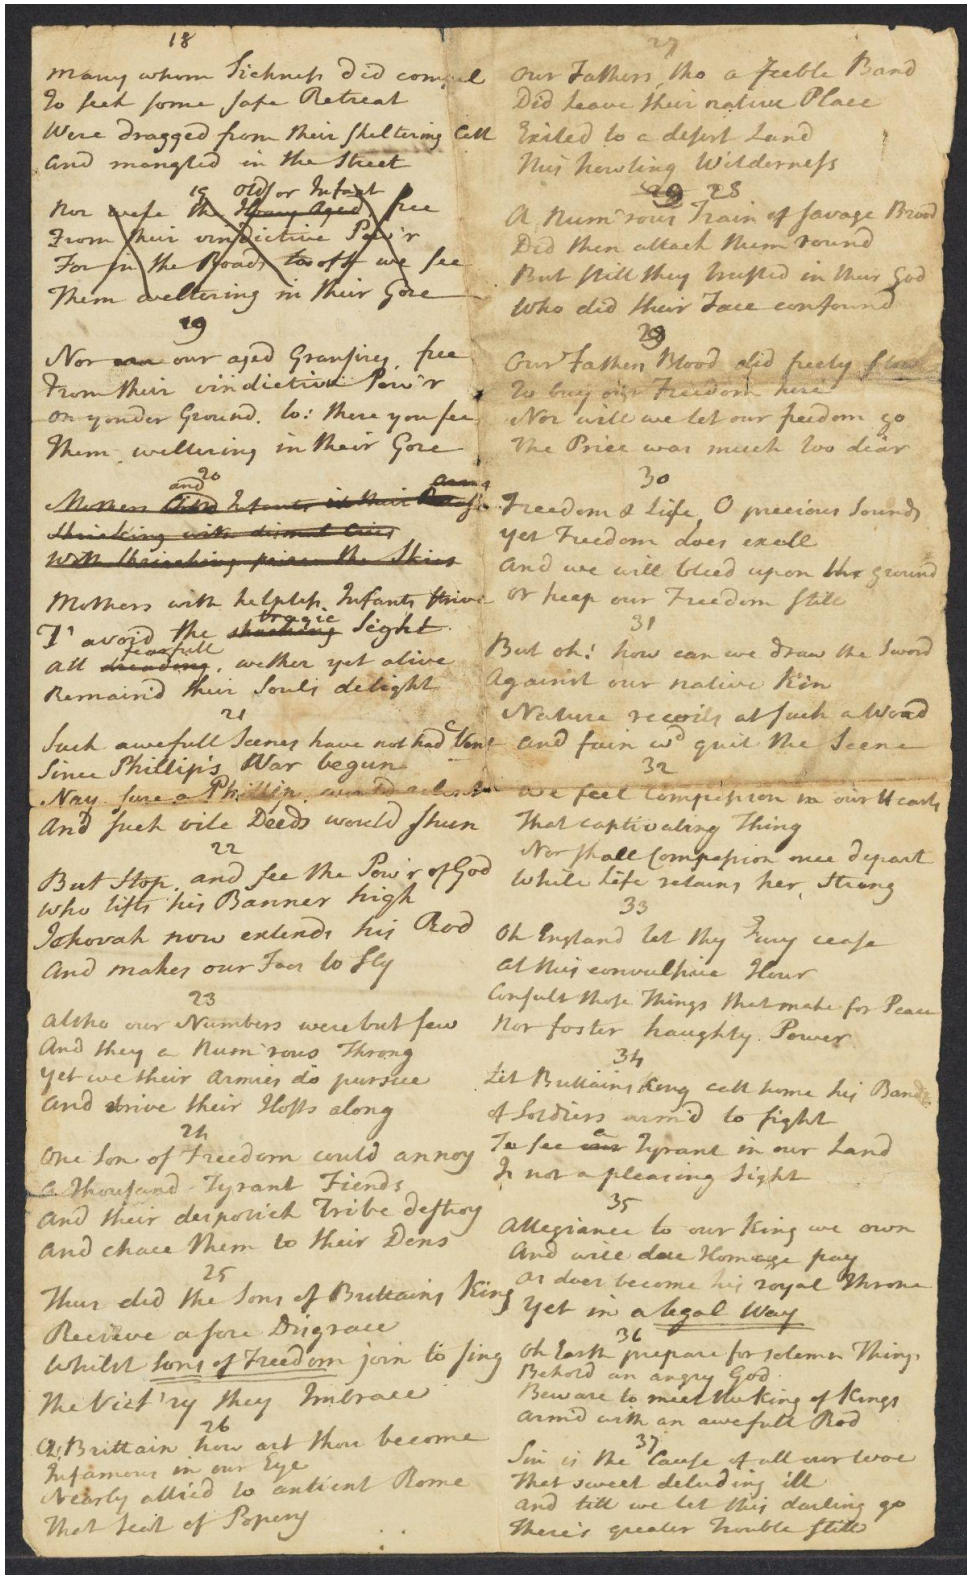 18
many whom Sickness did compel
To seek some safe Retreat
Were dragged from their sheltering Cell
And mangled in the Street
19 Olds or Infant
Nor were the Hoary Aged free
From their vindictive Pow'r
For in the Roads too oft we see
Them weltering in their Gore
19
Nor our aged Gransires, free
From their vindictive Pow'r
On yonder Ground, lo: there you see,
Them weltering in their Gore
20
and arms
Mothers Infants in their
Shrieking with dismal Cries
With Shrieking pierce the Skies
Mothers with helpless Infants strive
tragic
T' avoid the shocking Sight
fearfull
All, wether yet alive
Remain'd their Souls delight
21
Such awefull Scenes have not had Vent
Since Phillip's War begun
Nay sure a Phillip would
And such vile Deeds would shun
22
But Stop, and see the Pow'r of God
Who lifts his Banner high
Jehovah now extends his Rod
And makes our Foes to fly
23
Altho our Numbers were but few
And they a Num'rous Throng
Yet we their Armies do pursue
And drive their Hosts along
24
One Son of Freedom could annoy
a Thousand Tyrant Fiends
And their despotick Tribe destroy
And chace them to their Dens
25
Thus did the Sons of Brittains King
Recieve a sore Disgrace
Whilst Sons of Freedom join to sing
The Vict'ry they Imbrace
26
O! Brittain how art thou become
Infamous in our Eye
Nearly allied to antient Rome
That Seat of Popery
27
Our Fathers, tho a feeble Band
Did leave their native Place
Exiled to a desert Land
This howling Wilderness
29 28
A Num'rous Train of savage Brood
Did then attack them round
But still they trusted in their God
Who did their Face confound
29
Our Fathers Blood did freely flow
To buy our Freedom here
Nor will we let our freedom go
The Price was much too dear
30
Freedom & Life, O precious Sounds
Yet Freedom does excell
And we will bleed upon the ground
Or keep our Freedom still
31
But oh! how can we draw the Sword
Against our native Kin
Nature recoils at such a Word
And fain wd quit the Scene
32
We feel Compassion in our Hearts
That captivating Thing
Nor shall Compassion once depart
While Life retains her String
33
Oh England let thy Fury cease
At this convulsive Hour
Consult those Things that make for Peace
Nor foster haughty Power
34
Let Brittains King call home his Bands
of Soldiers arm'd to fight
a
To see our Tyrant in our Land
Is not a pleasing Sight
35
Allegiance to our King we own
And will due Homage pay
As does become his royal Throne
Yet in a legal Way
36
Oh Earth prepare for solemn Things
Behold an angry God
Beware to meet the King of Kings
Arm'd with an awefull Rod
37
Sin is the Cause of all our woe
That sweet deluding ill
And till we let this darling go
There's greater Trouble still